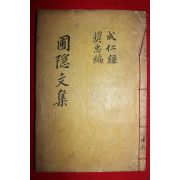 成仁錄
奬忠編
圃隐文集